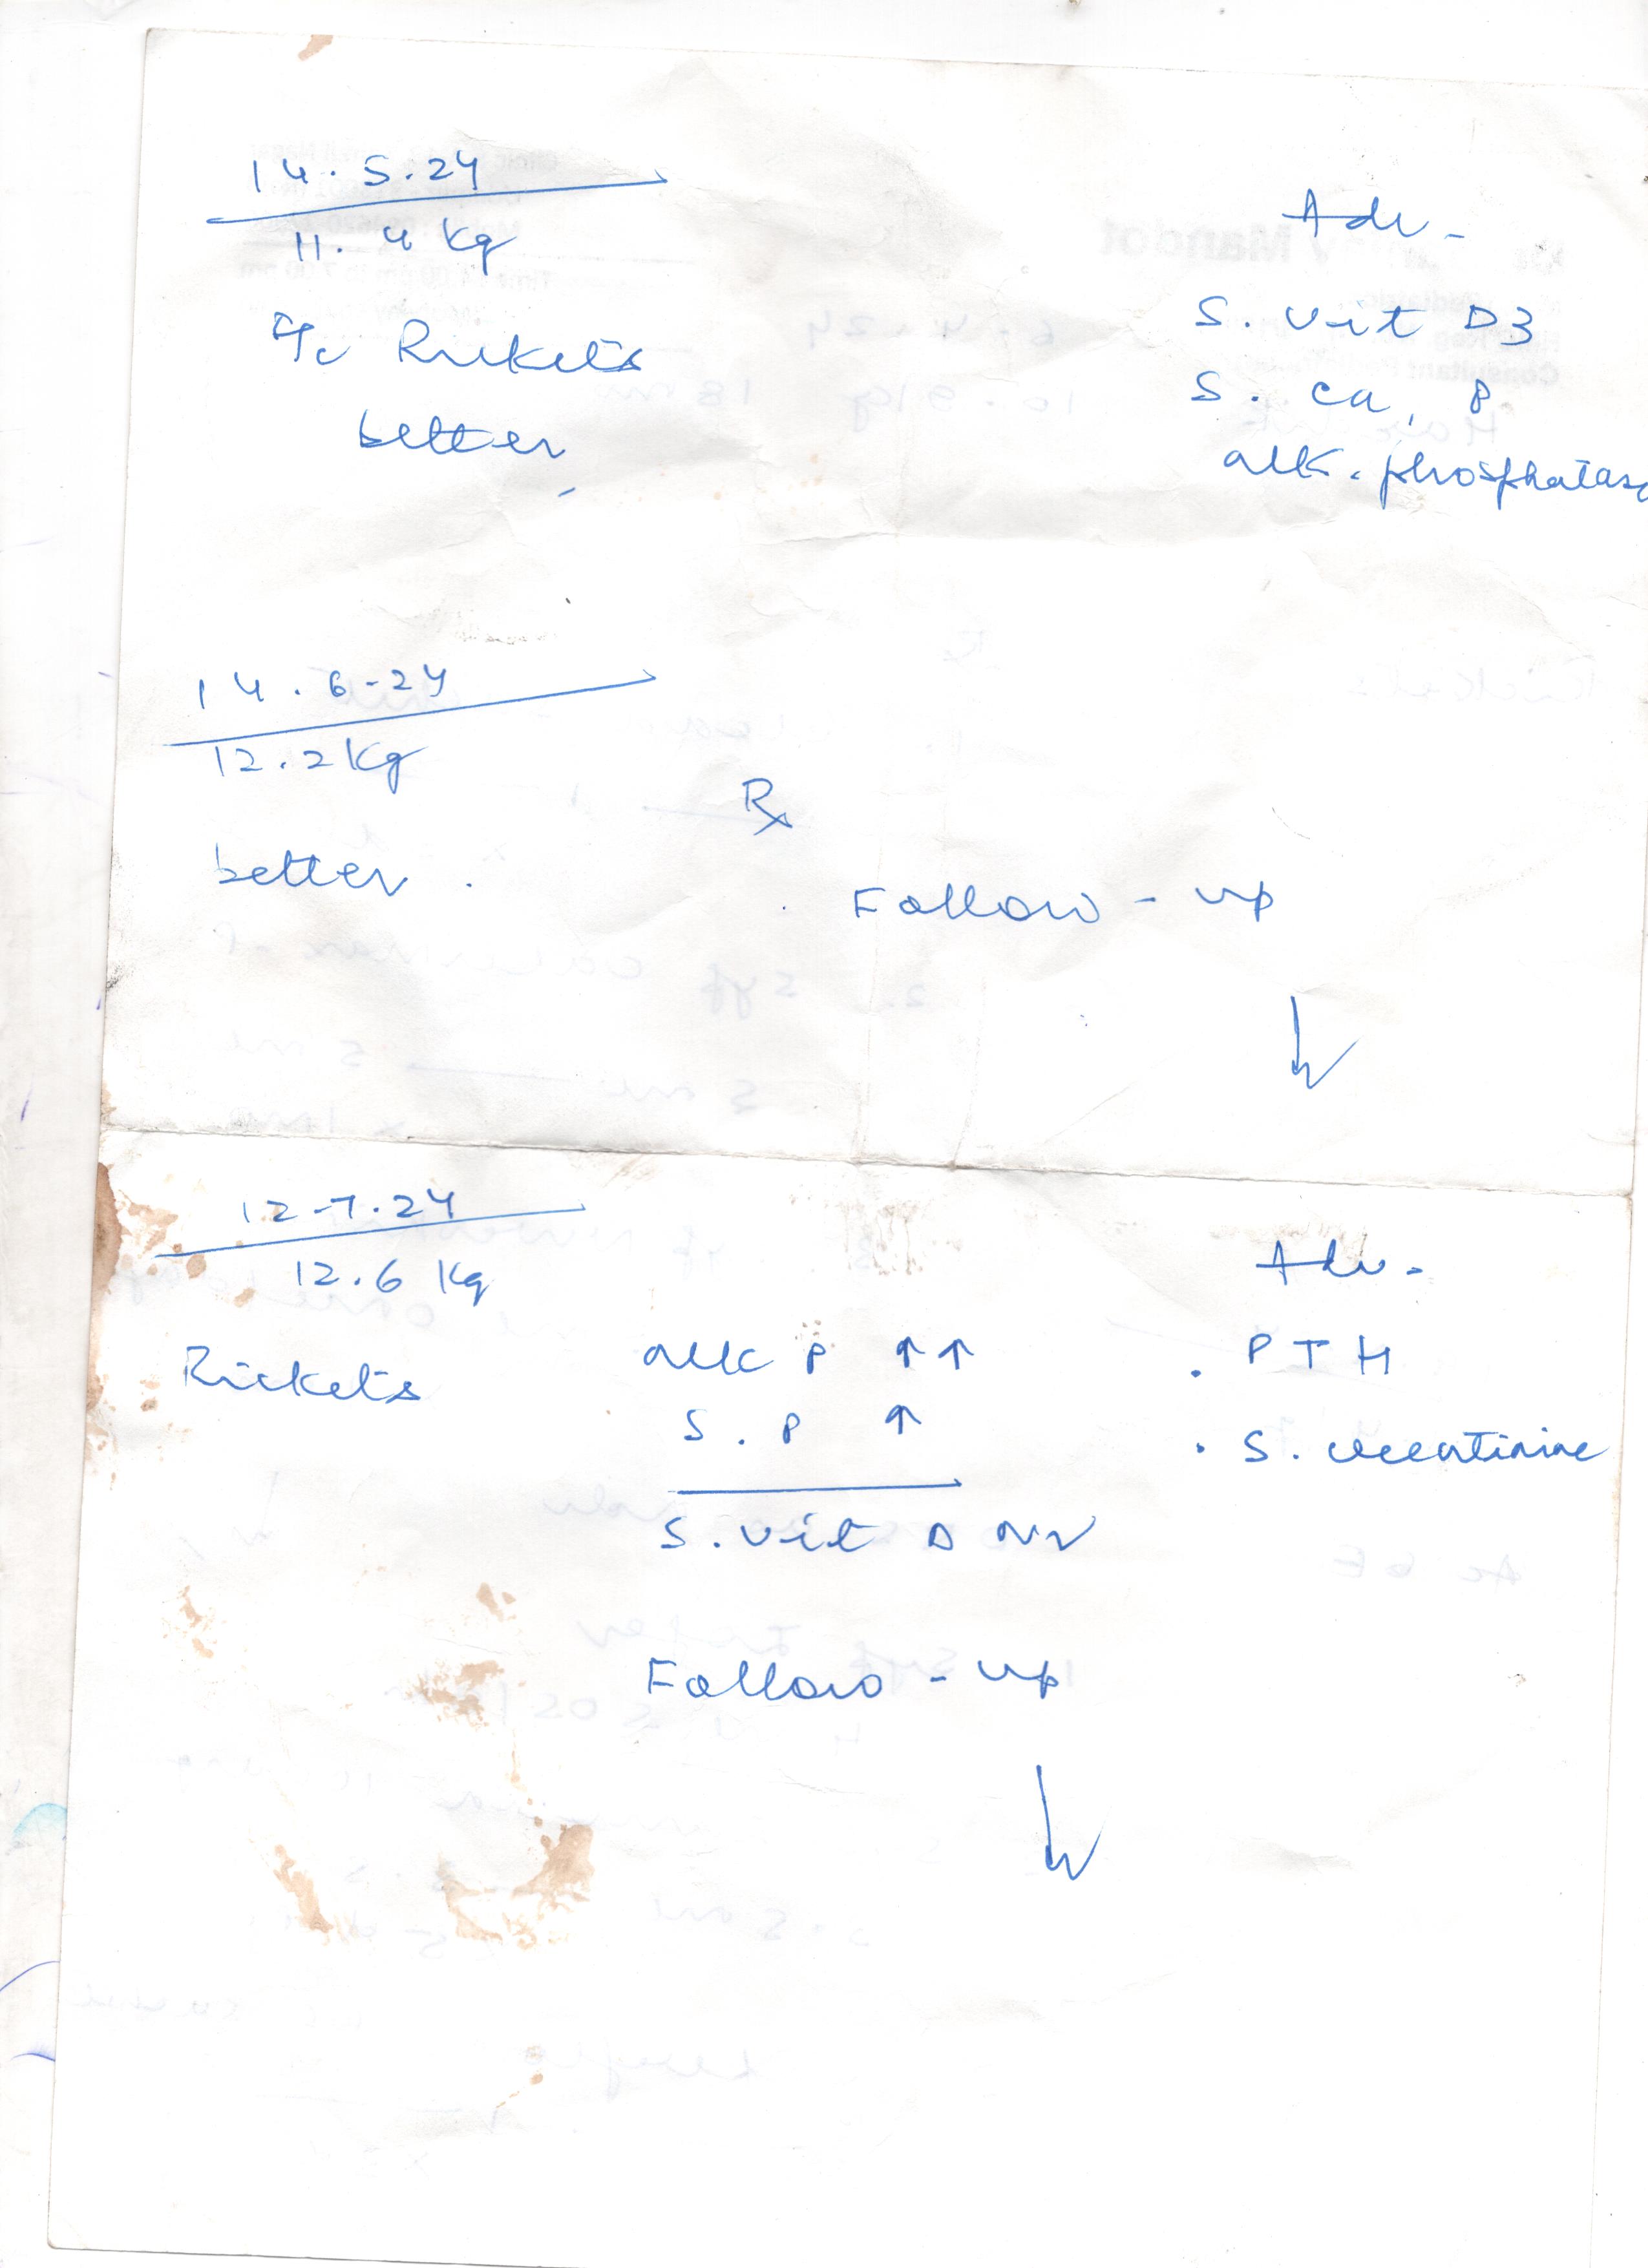 14.5.24
11.4 kg
Rickets
better
Adv-
S. vit D3
S. ca, P
alk. phosphatase
14.6-24
12.2 kg
better.
Rx
Follow-up
12-7.24
12.6 kg
Rickets
alk P ↑↑
S.P ↑
S.vit D
Adv-
. PTH
. S. creatinine
Follow-up